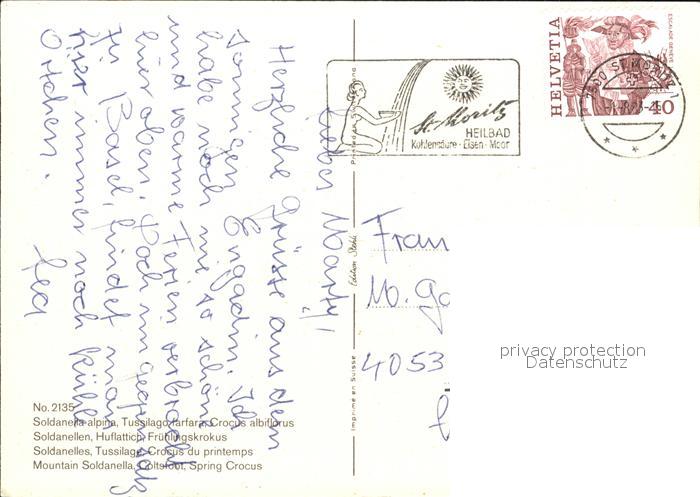 Lieber Marty!
Herzliche Grüsse aus dem
sonnigen Engadin. Ich
habe noch nie so schöne
und warme Ferien verbracht
hier oben. Doch im Gegensatz
zu Basel, findet man
hier immer noch kühle
Örtchen.
Lea
No. 2135
Soldanella alpina, Tussilago farfara, Crocus albiflorus
Soldanellen, Huflattich, Frühlingskrokus
Soldanelles, Tussilage, Crocus du printemps
Mountain Soldanella, Coltsfoot, Spring Crocus
Printed in Switzerland
Edition Stehli
Imprimé en Suisse
St. Moritz
HEILBAD
Kohlensäure - Eisen - Moor
HELVETIA
ESCALADE GENEVE
40
ST. MORITZ 1
Frau
M. Ga
4053
privacy protection
Datenschutz